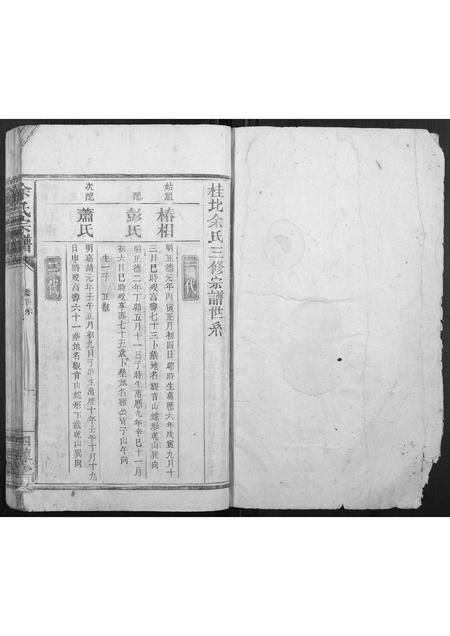 桂北余氏三修宗譜世系
一代
始祖 椿相
明正德元年丙寅正月初四日卯時生萬歷六年戊寅九月十
三日巳時歿高壽七十三卜葬地名觀音山蛇形乾山巽向
配 彭氏
明正德二年丁卯五月十一日子時生萬歷九年辛巳十一月
初六日巳時歿享壽七十五歲卜葬地名 子山午向
生一子 正
次配 蕭氏
明嘉靖元年壬午正月初九日子時生萬歷十年壬午十月十九
日申時歿高壽六十一葬地名觀音山蛇形下截乾山巽向
二代
余氏宗譜